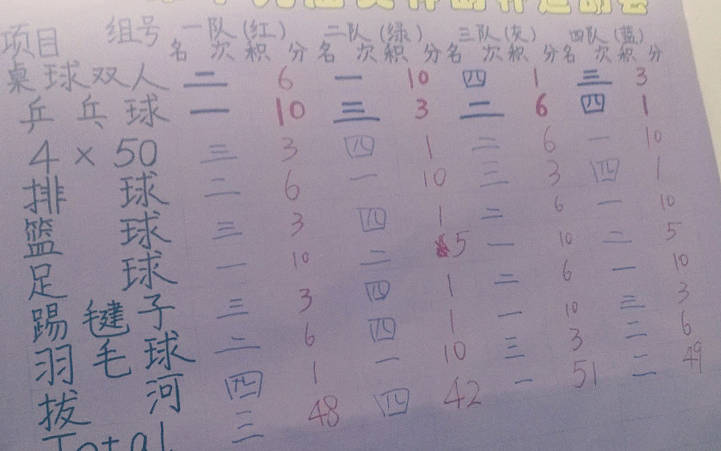 项目 组号 一队(红) 二队(绿) 三队(灰) 四队(蓝)
名次 积分 名次 积分 名次 积分 名次 积分
桌球双人 二 6 一 10 四 1 三 3
乒乓球 一 10 三 3 二 6 四 1
4×50 三 3 四 1 二 6 一 10
排球 二 6 一 10 三 3 四 1
篮球 三 3 四 1 二 6 一 10
足球 一 10 二 5 一 10 二 5
踢毽子 三 3 四 1 二 6 一 10
羽毛球 二 6 四 1 一 10 三 3
拔河 四 1 一 10 三 3 二 6
Total 三 48 四 42 一 51 二 49